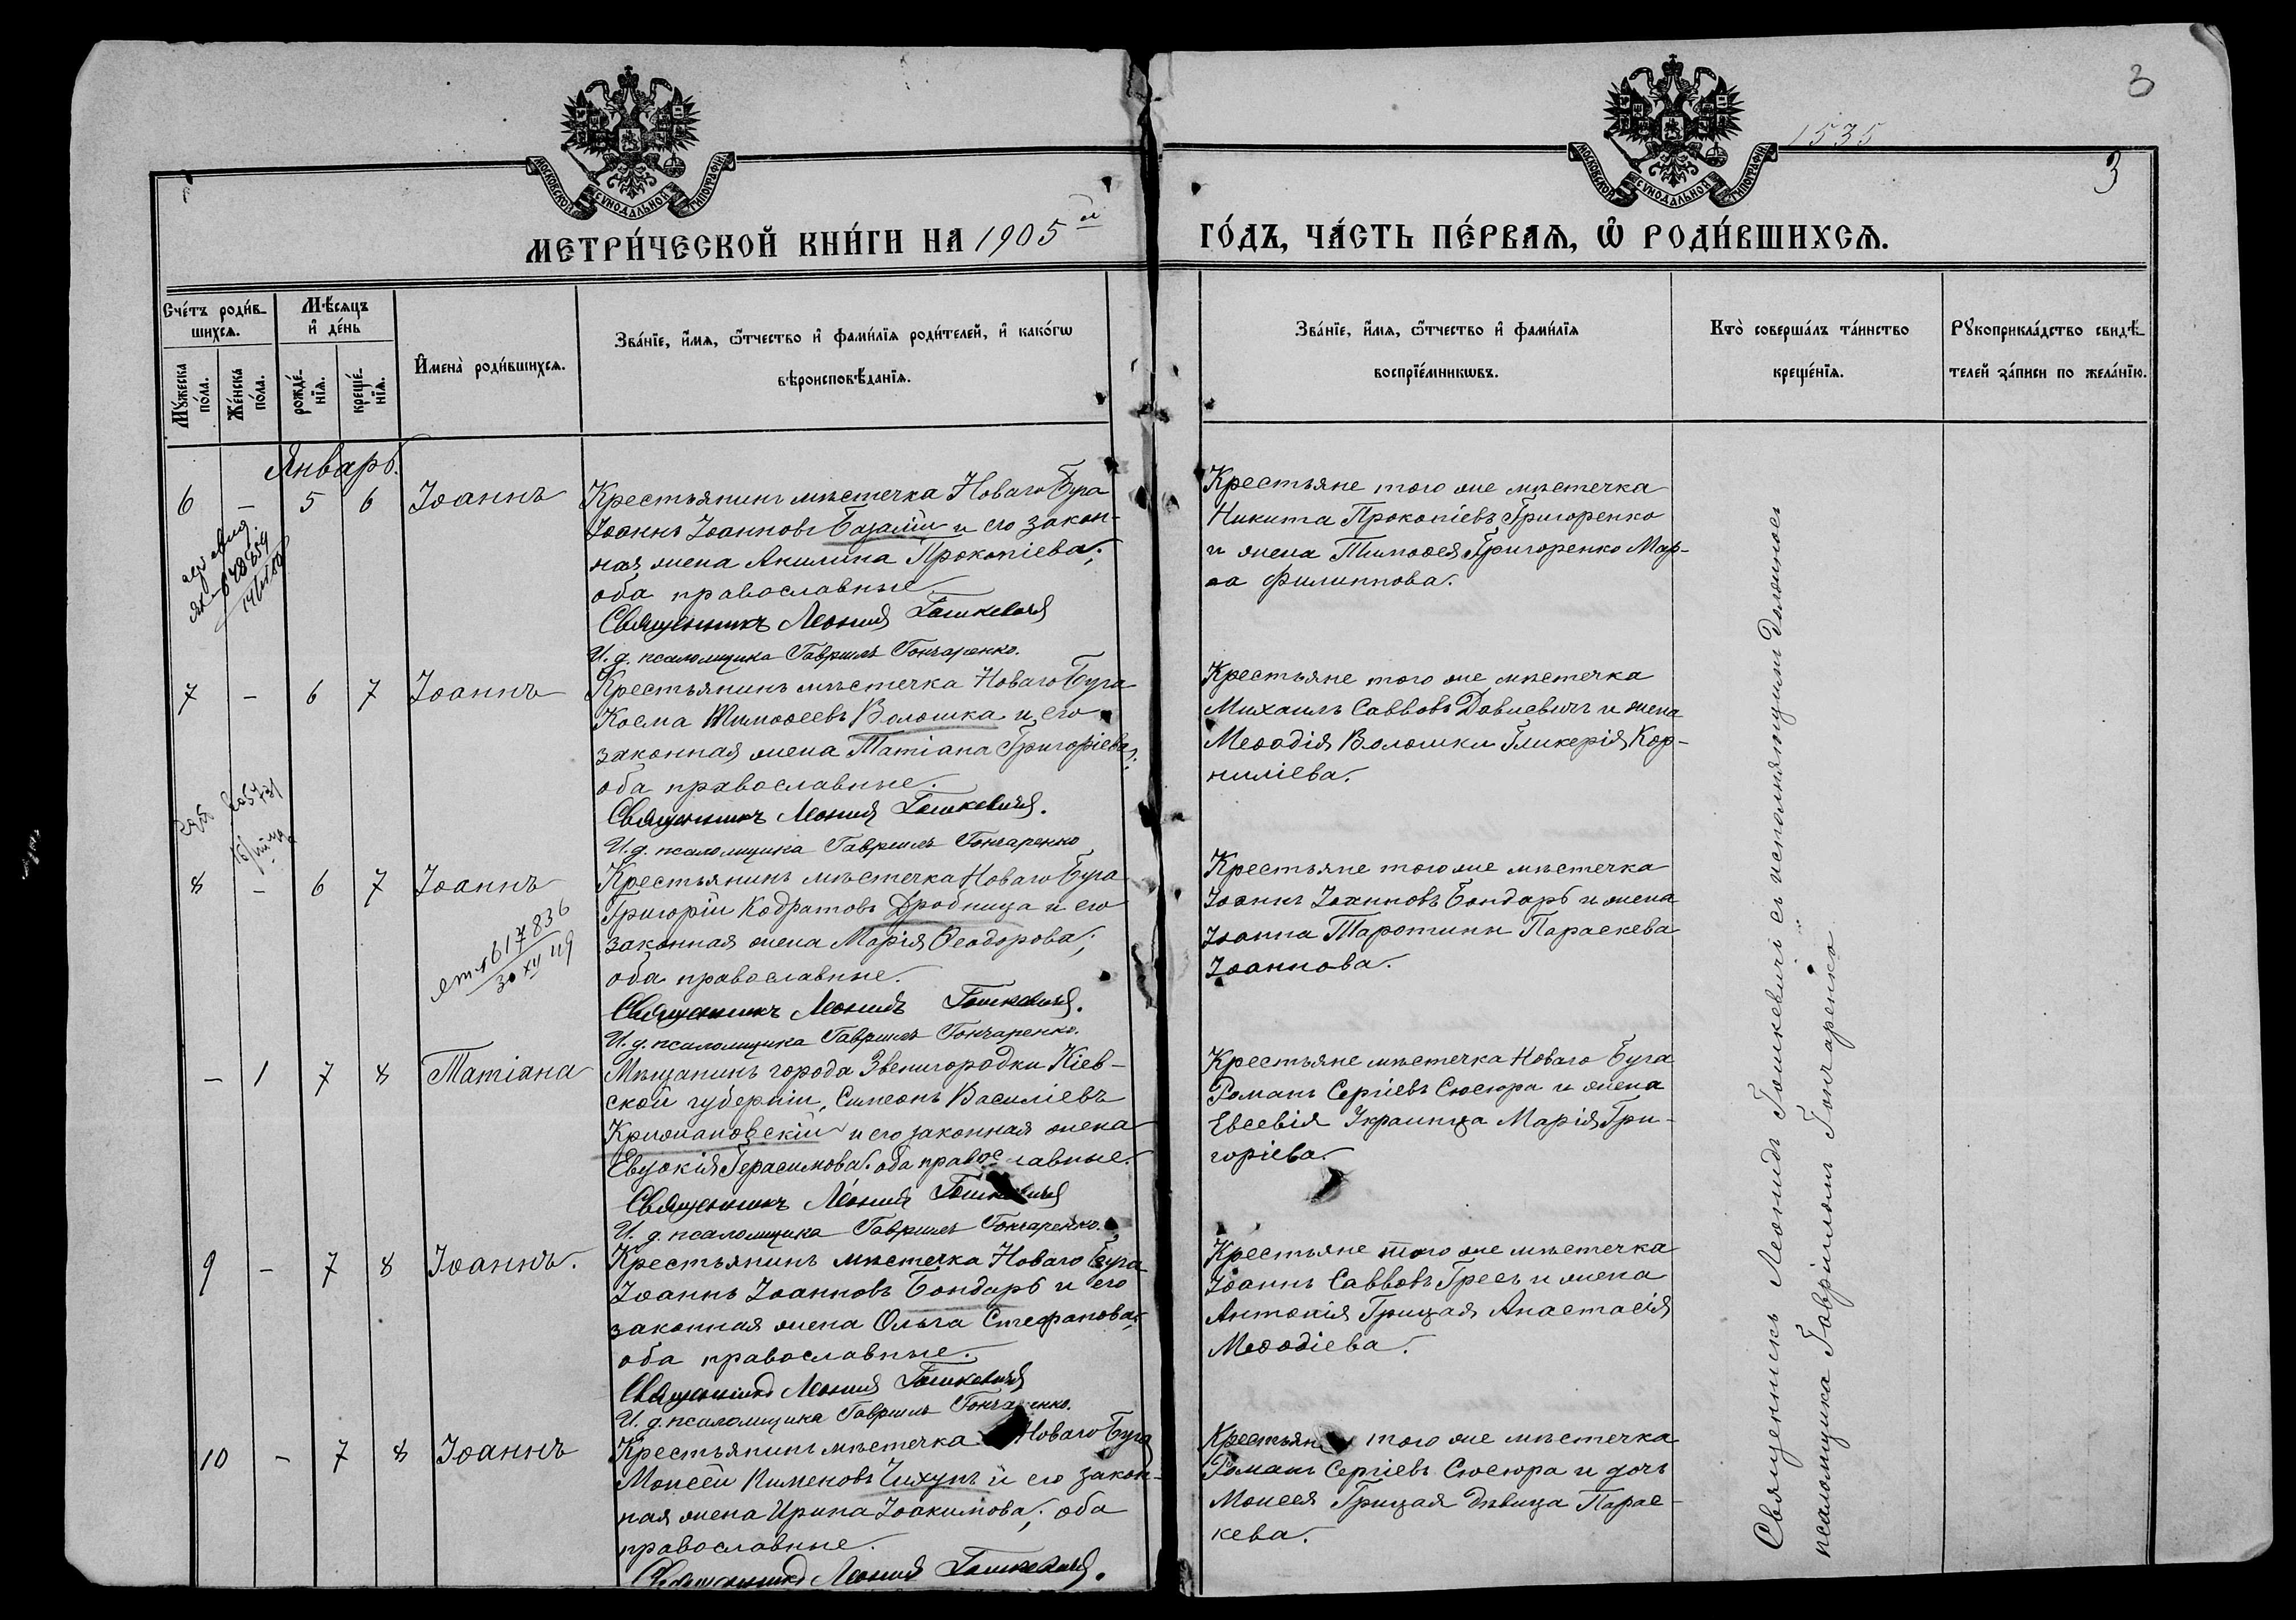 3
1535
3
МОСКОВСКОЙ СѴНОДАЛЬНОЙ ТИПОГРАФІИ
МОСКОВСКОЙ СѴНОДАЛЬНОЙ ТИПОГРАФІИ
МЕТРИ́ЧЕСКОЙ КНИ́ГИ НА 1905й
ГО́ДЪ, ЧА́СТЬ ПЕ́РВАѦ, Ѡ҆ РОДИ́ВШИХСѦ.
Сче́тъ роди́в-
шихсѧ.
Мꙋ́жеска по́ла.
Же́нска по́ла.
Мѣ́сѧцъ
и҆ де́нь
рожде́-
нїѧ.
креще́-
нїѧ.
И҆мена̀ роди́вшихсѧ.
Зва́нїе, и҆́мѧ, ѻ҆́тчество и҆ фами́лїѧ роди́телей, и҆ како́гѡ
вѣроисповѣ́данїѧ.
Зва́нїе, и҆́мѧ, ѻ҆́тчество и҆ фами́лїѧ
воспрїе́мникѡвъ.
Кто̀ соверша́лъ та́инство
креще́нїѧ.
Рꙋкоприкла́дство свидѣ́-
телей за́писи по жела́нїю.
Январь.
6 - 5 6 Іоаннъ
Крестьянинъ мѣстечка Новаго Буга
Іоаннъ Іоанновъ Базалій и его закон-
ная жена Акилина Прокопіева;
оба православные
Священникъ Леонидъ Гошкевичъ
И. д. псаломщика Гавріилъ Гончаренко.
Крестьяне того же мѣстечка
Никита Прокопіевъ Григоренко
и жена Тимоѳея Григоренко Мар-
ѳа Филиппова.
7 - 6 7 Іоаннъ
Крестьянинъ мѣстечка Новаго Буга
Косма Тимоѳеевъ Волошка и его
законная жена Татіана Григоріева;
оба православные.
Священникъ Леонидъ Гошкевичъ.
И. д. псаломщика Гавріилъ Гончаренко
Крестьяне того же мѣстечка
Михаилъ Саввовъ Довлевичъ и жена
Меѳодія Волошки Гликерія Кор-
нилiева.
8 - 6 7 Іоаннъ
617836
30 XII 49
Крестьянинъ мѣстечка Новаго Буга
Григорій Кодратовъ Дробница и его
законная жена Марія Ѳеодорова;
оба православные.
Священникъ Леонидъ Гошкевичъ.
И. д. псаломщика Гавріилъ Гончаренко.
Крестьяне того же мѣстечка
Іоаннъ Іоанновъ Бондарь и жена
Іоанна Таротинн Параскева
Іоаннова.
- 1 7 8 Татіана
Мѣщанинъ города Звенигородки Кіев-
ской губерніи, Симеонъ Василіевъ
Крижановскій и его законная жена
Евдокія Герасимова; оба православные.
Священникъ Леонидъ Гошкевичъ
И. д. псаломщика Гавріилъ Гончаренко.
Крестьяне мѣстечка Новаго Буга
Романъ Сергіевъ Сюсюра и жена
Евсевія Украинца Марія Гри-
горіева.
9 - 7 8 Іоаннъ.
Крестьянинъ мѣстечка Новаго Буга
Іоаннъ Іоанновъ Бондарь и его
законная жена Ольга Стефанова;
оба православные.
Священникъ Леонидъ Гошкевичъ
И. д. псаломщика Гавріилъ Гончаренко.
Крестьяне того же мѣстечка
Іоаннъ Саввовъ Гресь и жена
Антонія Грицая Анастасія
Меѳодіева.
10 - 7 8 Іоаннъ
Крестьянинъ мѣстечка Новаго Буга
Моисей Пименовъ Чихунъ и его закон-
ная жена Ирина Іоакимова; оба
православные.
Священникъ Леонидъ Гошкевичъ.
Крестьяне того же мѣстечка
Романъ Сергіевъ Сюсюра и дочь
Моисея Грицая дѣвица Парас-
кева.
Священникъ Леонидъ Гошкевичъ съ исполняющимъ должность
псаломщика Гавріиломъ Гончаренко